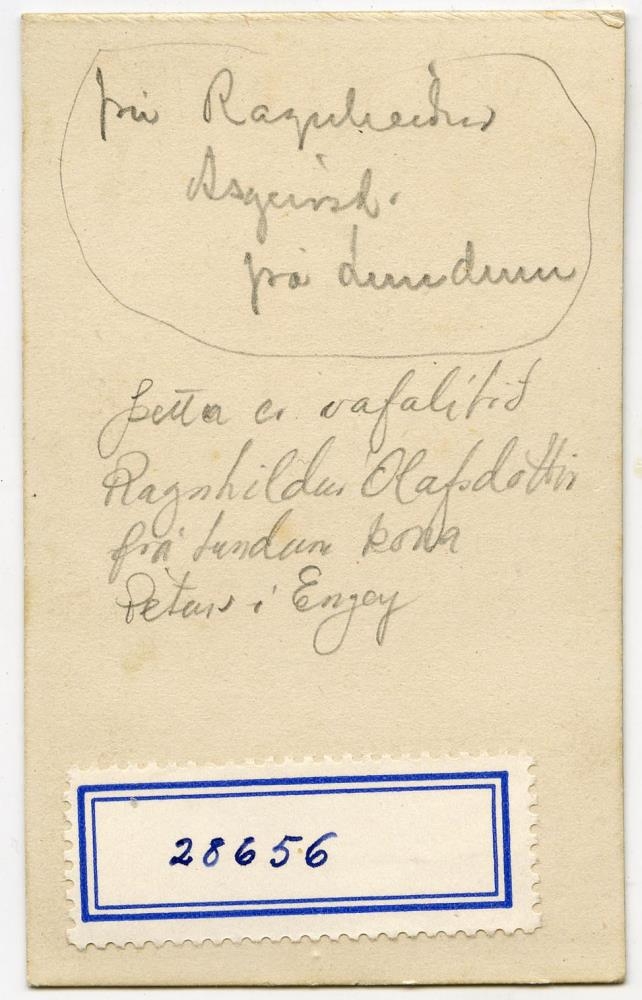 frú Ragnheiður
Ásgeirsd.
frá Lundum
Þetta er vafalítið
Ragnhildur Ólafsdóttir
frá Lundum kona
Péturs í Engey
28656